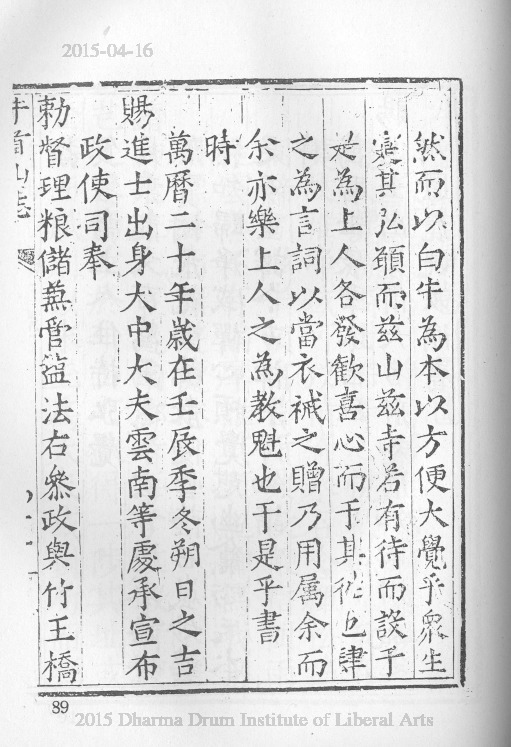 2015-04-16
然而以白牛為本以方便大覺乎眾生
寔其弘願而茲山茲寺若有待而設乎
是為上人各發歡喜心而于其徃也肆
之為言詞以當衣裓之贈乃用属余而
余亦樂上人之為教魁也于是乎書
時
萬曆二十年歲在壬辰季冬朔日之吉
賜進士出身大中大夫雲南等處承宣布
政使司奉
勑督理粮儲蕪管塩法右叅政與竹王橋
牛首山志
89
2015 Dharma Drum Institute of Liberal Arts